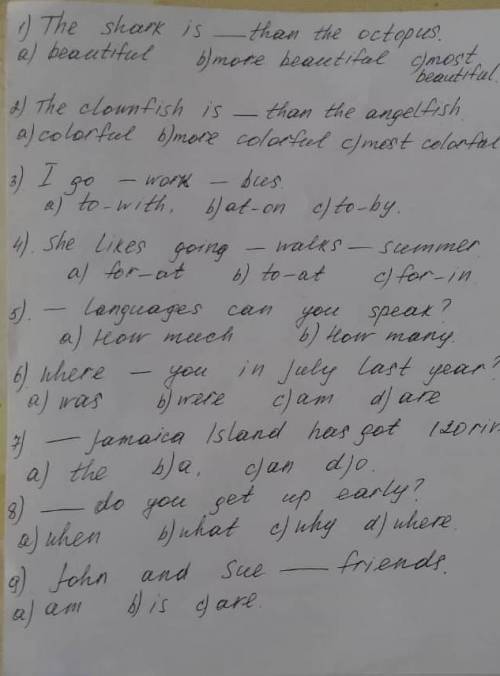 1) The shark is — than the octopus.
a) beautiful b) more beautiful c) most
beautiful
2) The clownfish is — than the angelfish
a) colorful b) more colorful c) most colorful
3) I go — work — bus.
a) to-with, b) at-on c) to-by.
4). She likes going — walks — summer
a) for-at b) to-at c) for-in
5). — languages can you speak?
a) How much b) How many.
6) where — you in july last year?
a) was b) were c) am d) are
7) — Jamaica Island has got 120 riv
a) the b) a, c) an d) o.
8) — do you get up early?
a) when b) what c) why d) where.
9) John and Sue — friends.
a) am b) is c) are.